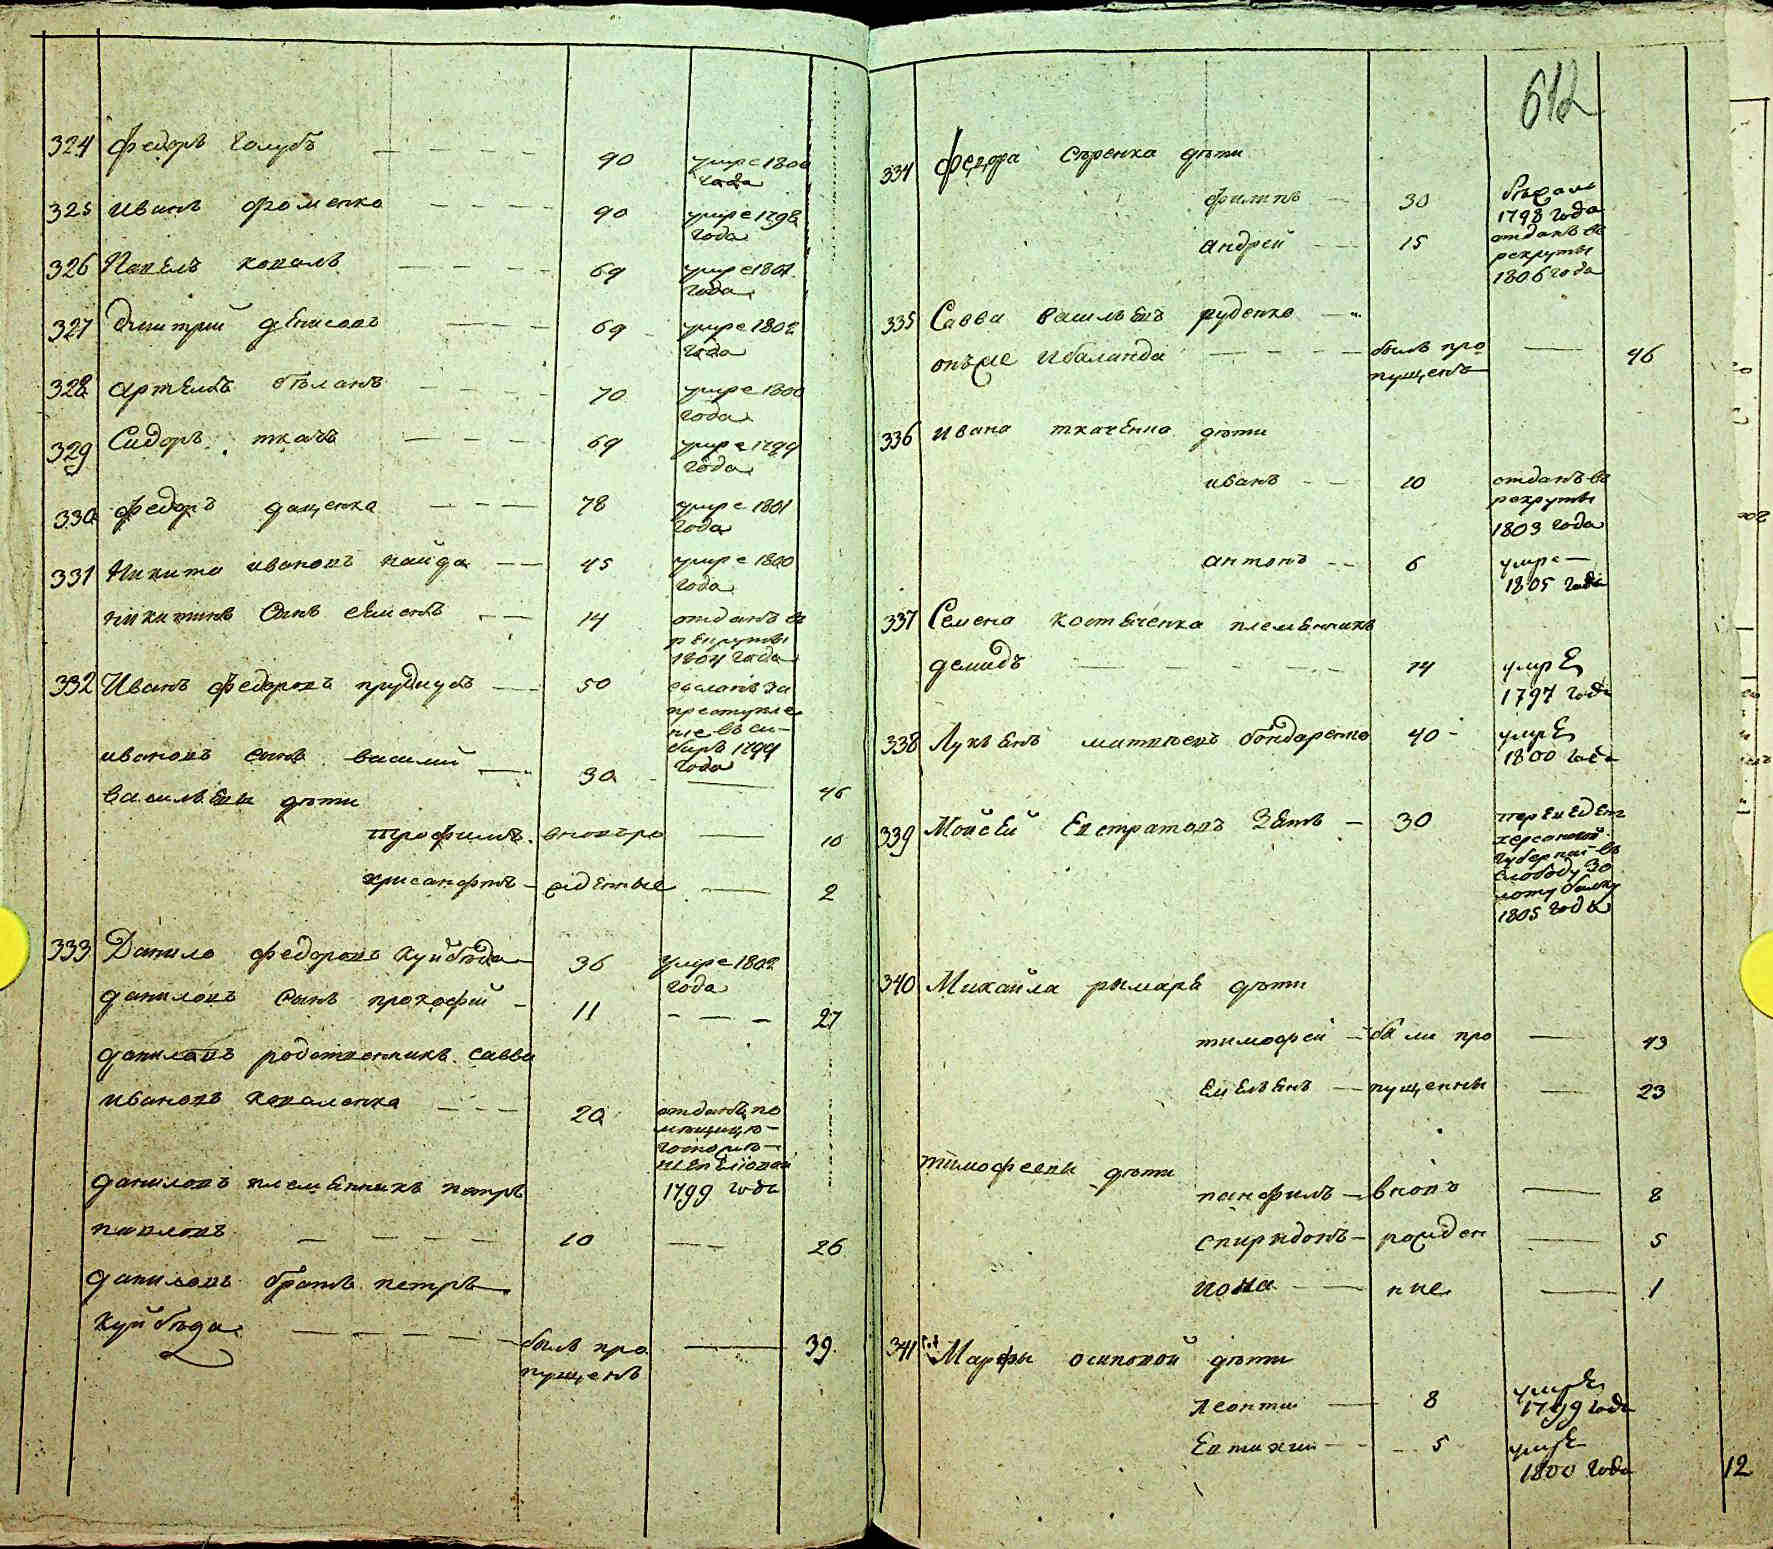 324 Федоръ Голубъ 90 умре 1800
года
325 Иванъ Фоменко 90 умре 1798
года
326 Павелъ Коваль 69 умре 1801
года
327 Дмитрий Денисовъ 69 умре 1802
года
328 Артемъ Бѣланъ 70 умре 1800
года
329 Сидоръ Ткачъ 69 умре 1799
года
330 Федоръ Даценко 78 умре 1801
года
331 Никита Ивановъ Найда 45 умре 1800
года
Никитинъ сынъ Семенъ 14 отданъ въ
рекруты
1804 года
332 Иванъ Федоровъ 50 сосланъ за
преступле
ние въ Си-
бирь 1799
года
Ивановъ сынъ Василий 30 46
Васильевы дѣти
Трофимъ вновъро 10
Хрисанфъ жденные 2
333 Данило Федоровъ Куйбѣда 36 умре 1802
года
Даниловъ сынъ Прокофий 11 27
Даниловъ родственникъ Савва
Ивановъ Коваленко 20 отданъ по
мѣщицѣ
1799 года
Даниловъ племянникъ Петръ
Павловъ 10 26
Даниловъ братъ Петръ
Куйбѣда былъ про 39
пущенъ
612
334 Федора Сѣренка дѣти
Филипъ 30 бѣжалъ
1798 года
Андрей 15 отданъ въ
рекруты
1806 года
335 Савва Васильевъ Руденко
онъже и Баланда былъ про 46
пущенъ
336 Ивана Ткаченка дѣти
Иванъ 10 отданъ въ
рекруты
1803 года
Антонъ 6 умре
1805 года
337 Семена Костыченка племянникъ
Демидъ 14 умре
1797 года
338 Лукьянъ Матвѣевъ Бондаренко 40 умре
1800 года
339 Мойсей Евстратовъ Зять 30 переведенъ
Херсонской
губернии въ
слободу Зо
лоту балку
1805 года
340 Михайла Рымаря дѣти
Тимофей были про 43
Емельянъ пущенны 23
Тимофеевы дѣти
Панфилъ вновъ 8
Спиридонъ рожден 5
Иона ные 1
341 Марфы Осиповой дѣти
Леонтий 8 умре
1799 года
Евтихий 5 умре
1800 года
12